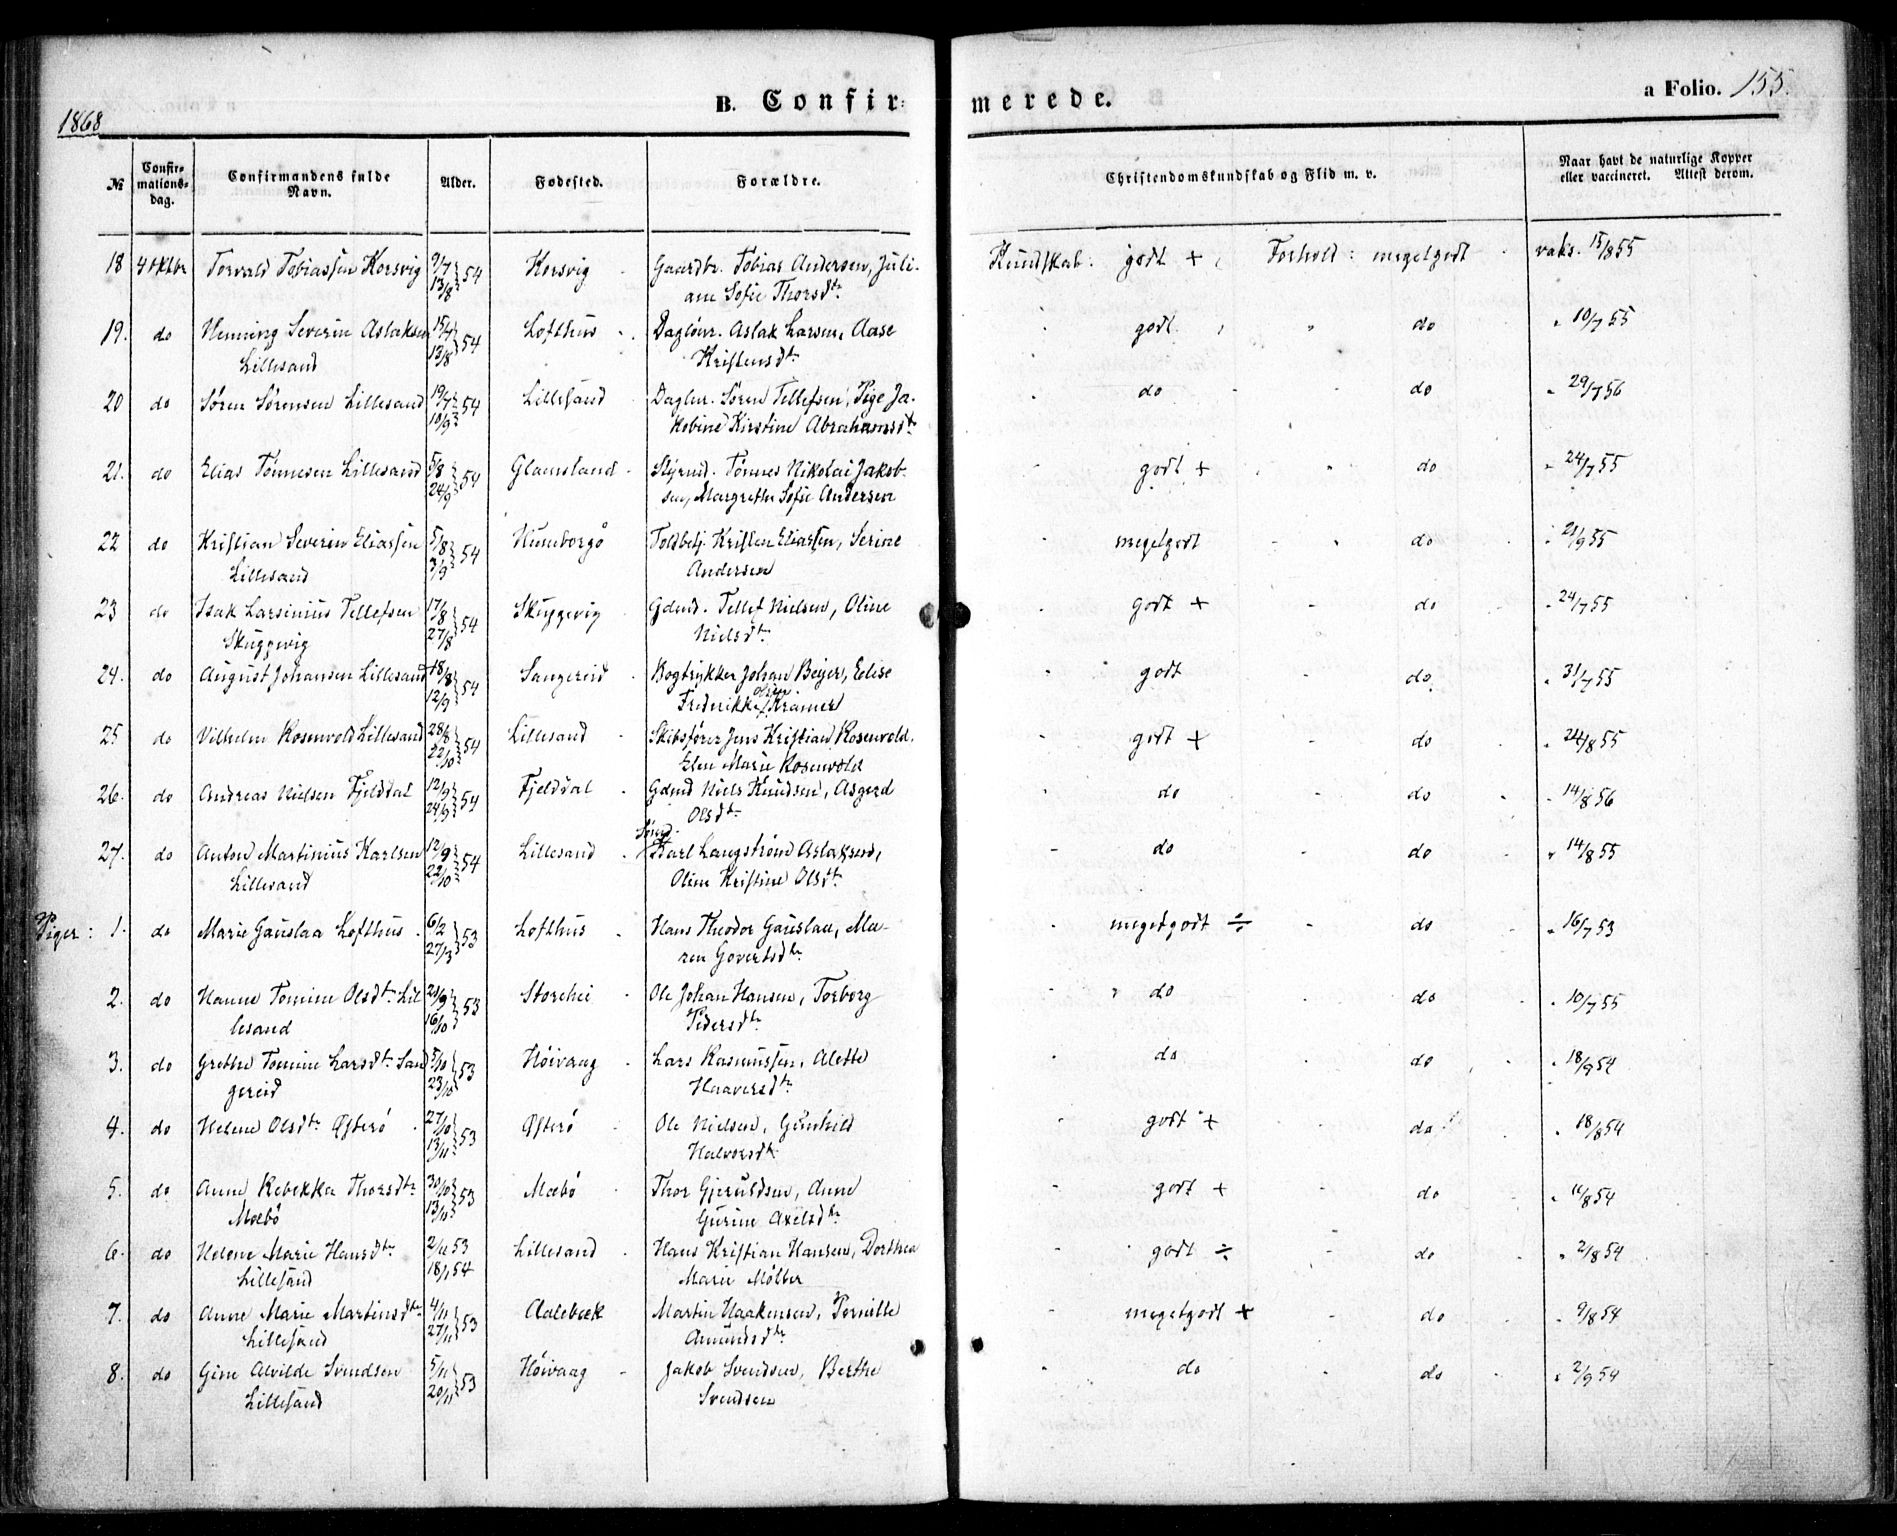 1868
B. Confirmerede.
a Folio. 155.
№
Confirmationsdag.
Confirmandens fulde Navn.
Alder.
Fødested.
Forældre.
Christendomskundskab og Flid m. v.
Naar havt de naturlige Kopper eller vaccineret. Attest derom.
18 4 Oktbr Torvald Tobiassen Korsvig 9/7 13/8 54 Korsvig Gaardbr. Tobias Andersen, Juli- Kundskab: godt + Forhold: megetgodt vaks. 15/8 55
ane Sofie Thorsdtr
19. do Henning Severin Aslaksen 15/4 13/8 54 Lofthus Daglønr. Aslak Larsen, Aase godt do " 10/7 55
Lillesand Kristensdtr
20 do Søren Sørensen Lillesand 19/7 10/9 54 Lillesand Daglnr. Søren Tellefsen, Pige Ja- do do " 29/7 56
kobine Kirstine Abrahamsdtr
21. do Elias Tønnesen Lillesand 5/8 24/9 54 Glamsland Styrmd. Tønnes Nikolai Jakob- godt + do " 24/7 55
sen, Margrethe Sofie Andersen
22 do Kristian Severin Eliassen 5/8 3/9 54 Humborgø Toldbetj. Kristen Eliassen, Serine megetgodt do " 21/9 55
Lillesand Andersen
23 do Isak Larsinius Tellefsen 17/8 27/8 54 Skuggevig Gdmd. Tellef Nielsen, Oline godt + do " 24/7 55
Skuggevig Nielsdtr
24. do August Johansen Lillesand 18/8 12/9 54 Sangereid Bogtrykker Johan Beijer, Elise godt do " 31/7 55
Frederikke Kramer
25 do Vilhelm Rosenvold Lillesand 28/8 22/10 54 Lillesand Skibsfører Jens Kristian Rosenvold, godt + do " 24/8 55
Elen Marie Rosenvold
26. do Andreas Nielsen Fjeldal 12/9 24/9 54 Fjeldal Gdmd Niels Knudsen, Asgerd do do " 14/8 56
Olsdtr
27. do Anton Martinius Karlsen 12/9 22/10 54 Lillesand Sømd. Karl Langstrøm Aslaksen, do do " 14/8 55
Lillesand Oline Kristine Olsdtr
Piger: 1. do Marie Gauslaa Lofthus 6/2 27/3 53 Lofthus Hans Theodor Gauslaa, Ma- megetgodt ÷ do " 16/7 53
ren Govertsdtr
2. do Hanne Tomine Olsdtr Lil- 21/9 16/10 53 Storehei Ole Johan Hansen, Torborg do do " 10/7 55
lesand Pedersdtr
3. do Grethe Tomine Larsdtr San 5/10 23/10 53 Høivaag Lars Rasmussen, Alette do do " 18/9 54
gereid Haaversdtr
4. do Helene Olsdtr Østerø 27/10 13/11 53 Østerø Ole Nielsen, Gunhild godt + do " 18/8 54
Halvorsdtr
5. do Anne Rebekka Thorsdtr 30/10 13/11 53 Mæbø Thor Gjeruldsen, Anne godt + do " 11/8 54
Mæbø Gurine Axelsdtr
6. do Helene Marie Hansdtr 2/11 53 18/1 54 Lillesand Hans Kristian Hansen, Dorthea godt ÷ do " 2/8 54
Lillesand Marie Møller
7. do Anne Marie Martinsdtr 4/11 27/11 53 Aalebæk Martin Haakensen, Pernille megetgodt + do " 9/8 54
Lillesand Amundsdtr
8. do Gine Alvilde Svendsen 5/11 20/11 53 Høivaag Jakob Svendsen, Berthe do do " 2/9 54
Lillesand Svendsen